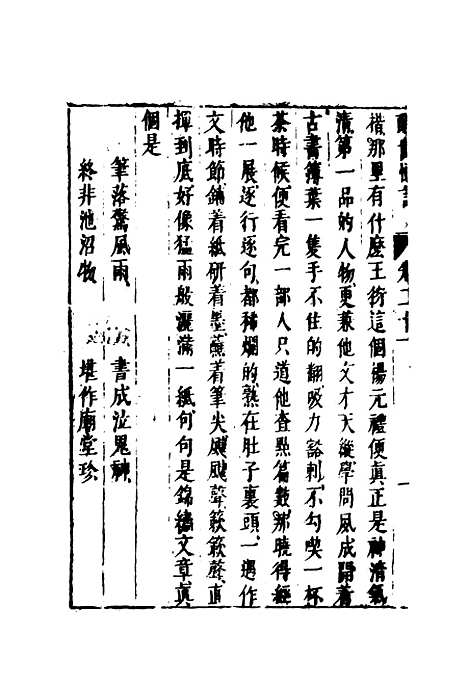 醒世恒言 卷二十一
楷那里有什麼王衍這個楊元禮便真正是神清氣
清第一品的人物更兼他文才天縱學問夙成開着
古書簿葉一隻手不住的翻吸力豁剌不勾喫一杯
茶時候便看完一部人只道他查點篇數那曉得經
他一展逐行逐句都稀爛的熟在肚子裏頭一遇作
文時節鋪着紙研着墨蘸着筆尖颼颼聲簌簌聲直
揮到底好像猛雨般灑滿一紙句句是錦繡文章真
個是
筆落驚風雨 書成泣鬼神
終非池沼物 堪作廟堂珍